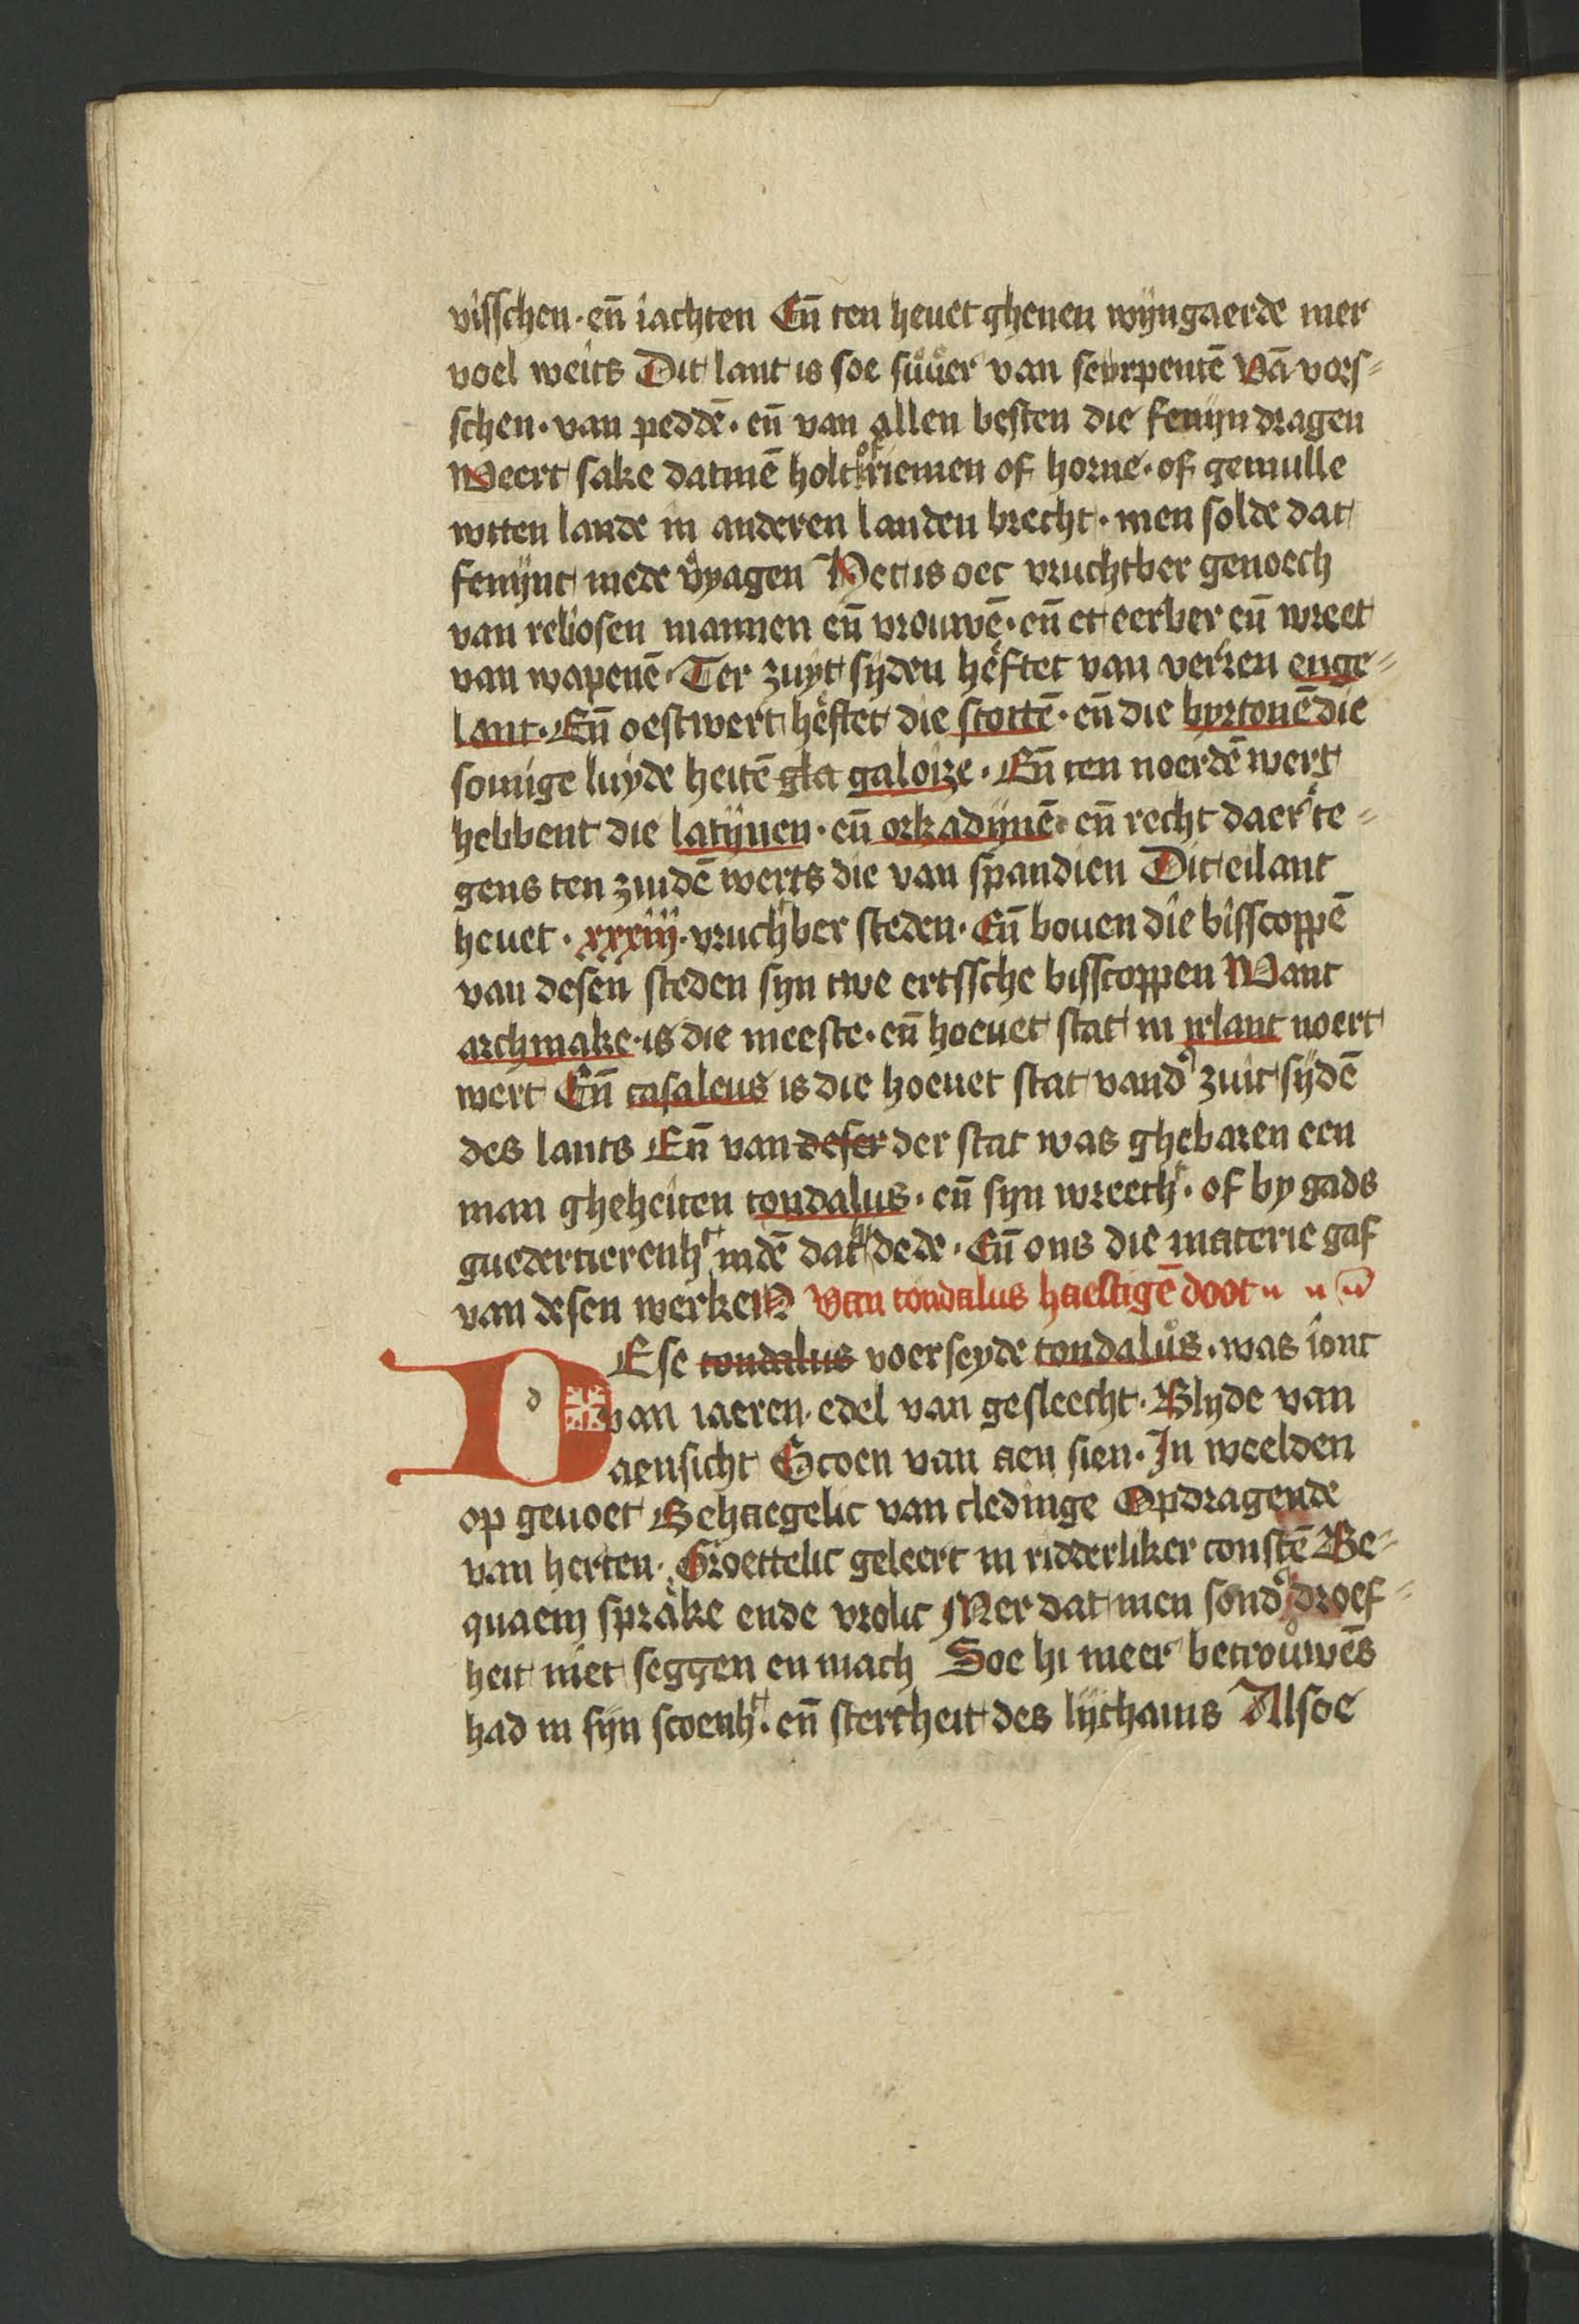 visschen · en̄ iachten En̄ ten heuet ghenen wijngaerde mer
voel weits Dit lant is soe suuer van serpentē Vā vors-
schen · van peddē · en̄ van allen besten die fenijn dragen
Weert sake datmē holt of riemen of horne · of gemulle
wtten lande in anderen landen brecht · men solde dat
fenijnt mede v̓yagen Het is oec vruchtber genoech
van reliosen mannen en̄ vrouwē · en̄ et eerber en̄ wreet
van wapenē · Ter zuyt sijden heftet van verren enge-
lant · En̄ oestwert heftet die scottē · en̄ die byrtonē die
somige luyde heitē gla galoize · En̄ ten noerdē wert
hebbent die latijnen · en̄ orkadijnē · en̄ recht daer te-
gens ten zuidē werts die van spandien Dit eilant
heuet · xxxiij · vruchtber steden · En̄ bouen die bisscoppē
van desen steden syn twe ertssche bisscoppen Want
archmake · is die meeste · en̄ hoeuet stat in irlant noert
wert En̄ casaleus is die hoeuet stat vand̓ zuit sijdē
des lants En̄ van deser der stat was ghebaren een
man gheheiten tondalus · en̄ syn wreeth̓ · of by gads
guedertierenh̓t indē dat hi dede · En̄ ons die materie gaf
van desen werken Van tondalus haestigē doot
DEse tondalus voerseyde tondalus · was ionc
van iaeren · edel van gesleecht · Blyde van
aensicht Scoen van aen sien · In weelden
op geuoet Behaegelic van cledinge Opdragende
van herten · Groettelic geleert in ridderliker constē Be-
quaem sprake ende vrolic Mer dat men sond̓ droef-
heit niet seggen en mach Soe hi meer betrouwēs
had in syn scoenh̓t · en̄ stercheit des lijchams Alsoe